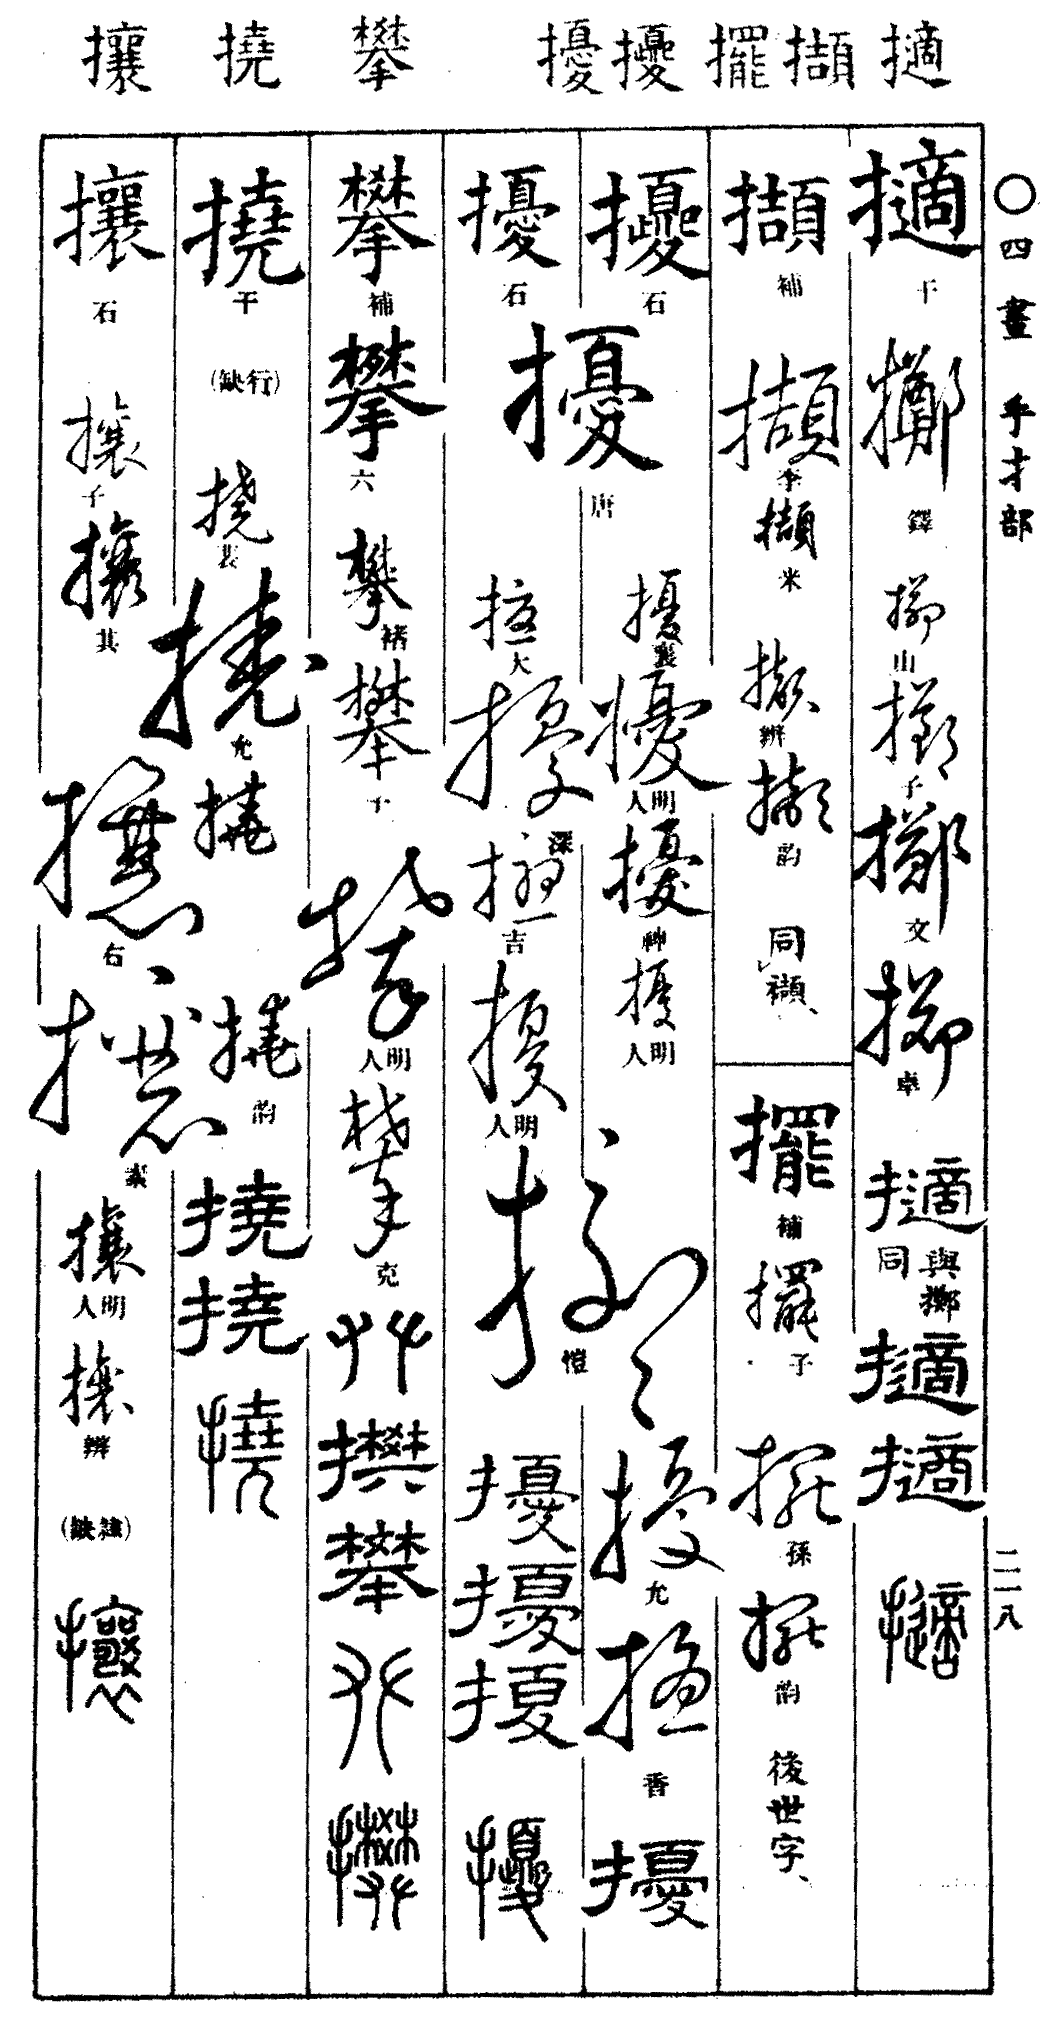 擿 擷 擺 擾 擾 攀 撓 攘
〇四畫 手才部
二一八
擿 干
擲 鐸
擲 山
擲 子
擲 文
擲 卓
擿 與擲同
擿
擿
擿
擷 補
擷 李
擷 米
擷 辨
擷 韵
同襭、
擺 補
擺 子
擺 孫
擺 韵
後世字、
擾 石
擾 唐
擾 裏
擾 明人
擾 神
擾 明人
擾 愷
擾 允
擾 香
擾
擾 石
擾 大
擾 深
擾 吉
擾 明人
擾
擾
擾
擾
攀 補
攀 六
攀 褚
攀 千
攀 明人
攀 克
攀
攀
攀
撓 干
(行缺)
撓 裴
撓 允
撓
撓 韵
撓
撓
撓
攘 石
攘 子
攘 其
攘 右
攘 素
攘 明人
攘 辨
(隸缺)
攘